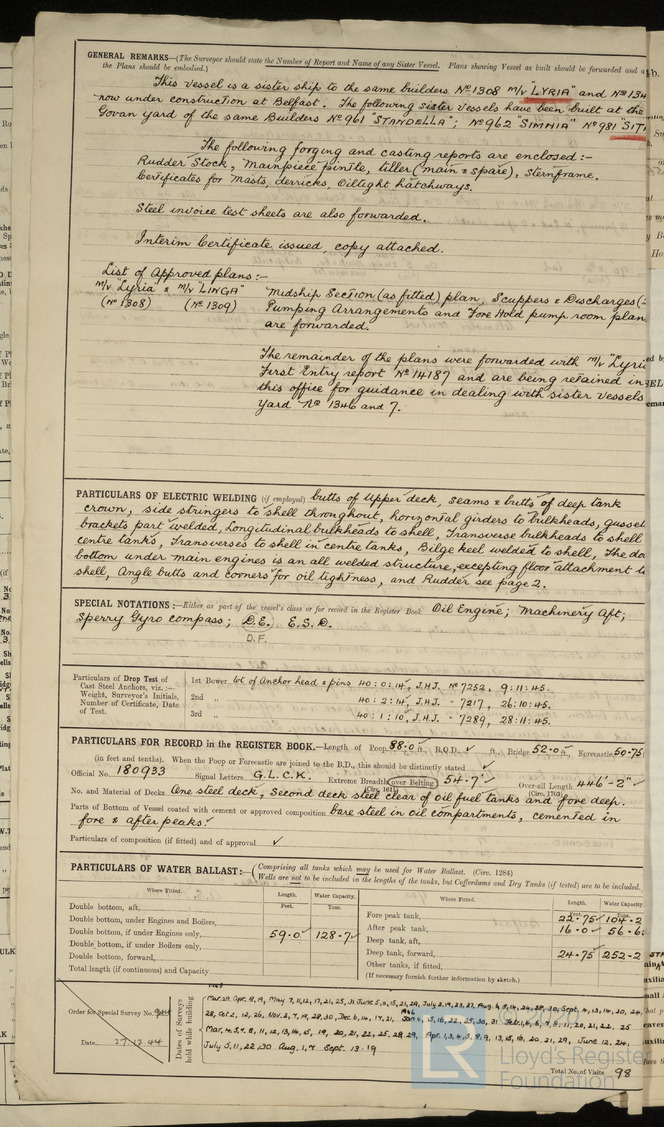 GENERAL REMARKS—(The Surveyor should state the Number of Report and Name of any Sister Vessel. Plans showing Vessel as built should be forwarded and a
the Plans should be embodied.)
This vessel is a sister ship to the same builders No 1308 m/v "LYRIA" and No 134
now under construction at Belfast. The following sister vessels have been built at the
Govan yard of the same Builders No 961 "STANDELLA"; No 962 "SIMNIA" No 981 "SIT
The following forging and casting reports are enclosed :-
Rudder Stock, Mainpiece pintle, tiller (main & spare), Sternframe.
Certificates for Masts, derricks, Oiltight hatchways.
Steel invoice test sheets are also forwarded.
Interim Certificate issued copy attached.
List of Approved plans :-
m/v "Lyria" & m/v "LINGA"
(No 1308) (No 1309)
Midship Section (as fitted) plan, Scuppers & Discharges
Pumping Arrangements and Fore Hold pump room plan
are forwarded.
The remainder of the plans were forwarded with m/v "Lyria
First Entry report No 14187 and are being retained in
this office for guidance in dealing with sister vessels
Yard No 1346 and 7.
PARTICULARS OF ELECTRIC WELDING (if employed) butts of Upper deck, seams & butts of deep tank
crown, side stringers to shell throughout, horizontal girders to bulkheads, gusset
brackets part welded, Longitudinal bulkheads to shell, Transverse bulkheads to shell
centre tanks, Transverses to shell in centre tanks, Bilge keel welded to shell, The do
bottom under main engines is an all welded structure, excepting floor attachment to
shell, Angle butts and corners for oil tightness, and Rudder see page 2.
SPECIAL NOTATIONS :—Either as part of the vessel's class or for record in the Register Book. Oil Engine; Machinery Aft;
Sperry Gyro compass; D.E. E.S.D.
D.F.
Particulars of Drop Test of
Cast Steel Anchors, viz. :—
Weight, Surveyor's Initials,
Number of Certificate, Date
of Test.
1st Bower Wt of Anchor head & pins 40:0:14, J.H.J. No 7252, 9:11:45.
2nd " 40:2:14, J.H.J. " 7217, 26:10:45.
3rd " 40:1:10, J.H.J. " 7289, 28:11:45.
PARTICULARS FOR RECORD in the REGISTER BOOK.—Length of Poop 88.0 ft., R.Q.D. ✓ ft., Bridge 52.0 ft., Forecastle 50.75
(in feet and tenths). When the Poop or Forecastle are joined to the B.D., this should be distinctly stated ✓
Official No. 180933 Signal Letters G.L.C.K. Extreme Breadth over Belting 54'-7" Over-all Length 446'-2"
(Circ. 1611) (Circ. 1703)
No. and Material of Decks One steel deck, Second deck steel clear of oil fuel tanks and fore deep.
Parts of Bottom of Vessel coated with cement or approved composition bare steel in oil compartments, cemented in
fore & after peaks.
Particulars of composition (if fitted) and of approval ✓
PARTICULARS OF WATER BALLAST :— (Comprising all tanks which may be used for Water Ballast. (Circ. 1284)
Wells are not to be included in the lengths of the tanks, but Cofferdams and Dry Tanks (if tested) are to be included.
Where Fitted. Length. Water Capacity.
Feet. Tons.
Double bottom, aft,
Double bottom, under Engines and Boilers,
Double bottom, if under Engines only, 59.0 128.7
Double bottom, if under Boilers only,
Double bottom, forward,
Total length (if continuous) and Capacity
Where Fitted. Length. Water Capacity
Feet. Tons.
Fore peak tank, 22.75 104.2
After peak tank, 16.0 56.6
Deep tank, aft,
Deep tank, forward, 24.75 252.2
Other tanks, if fitted,
(If necessary furnish further information by sketch.)
Order for Special Survey No.
Date 27.12.44
Dates of Surveys
held while building
Total No. of Visits 98
Lloyd's Register
Foundation